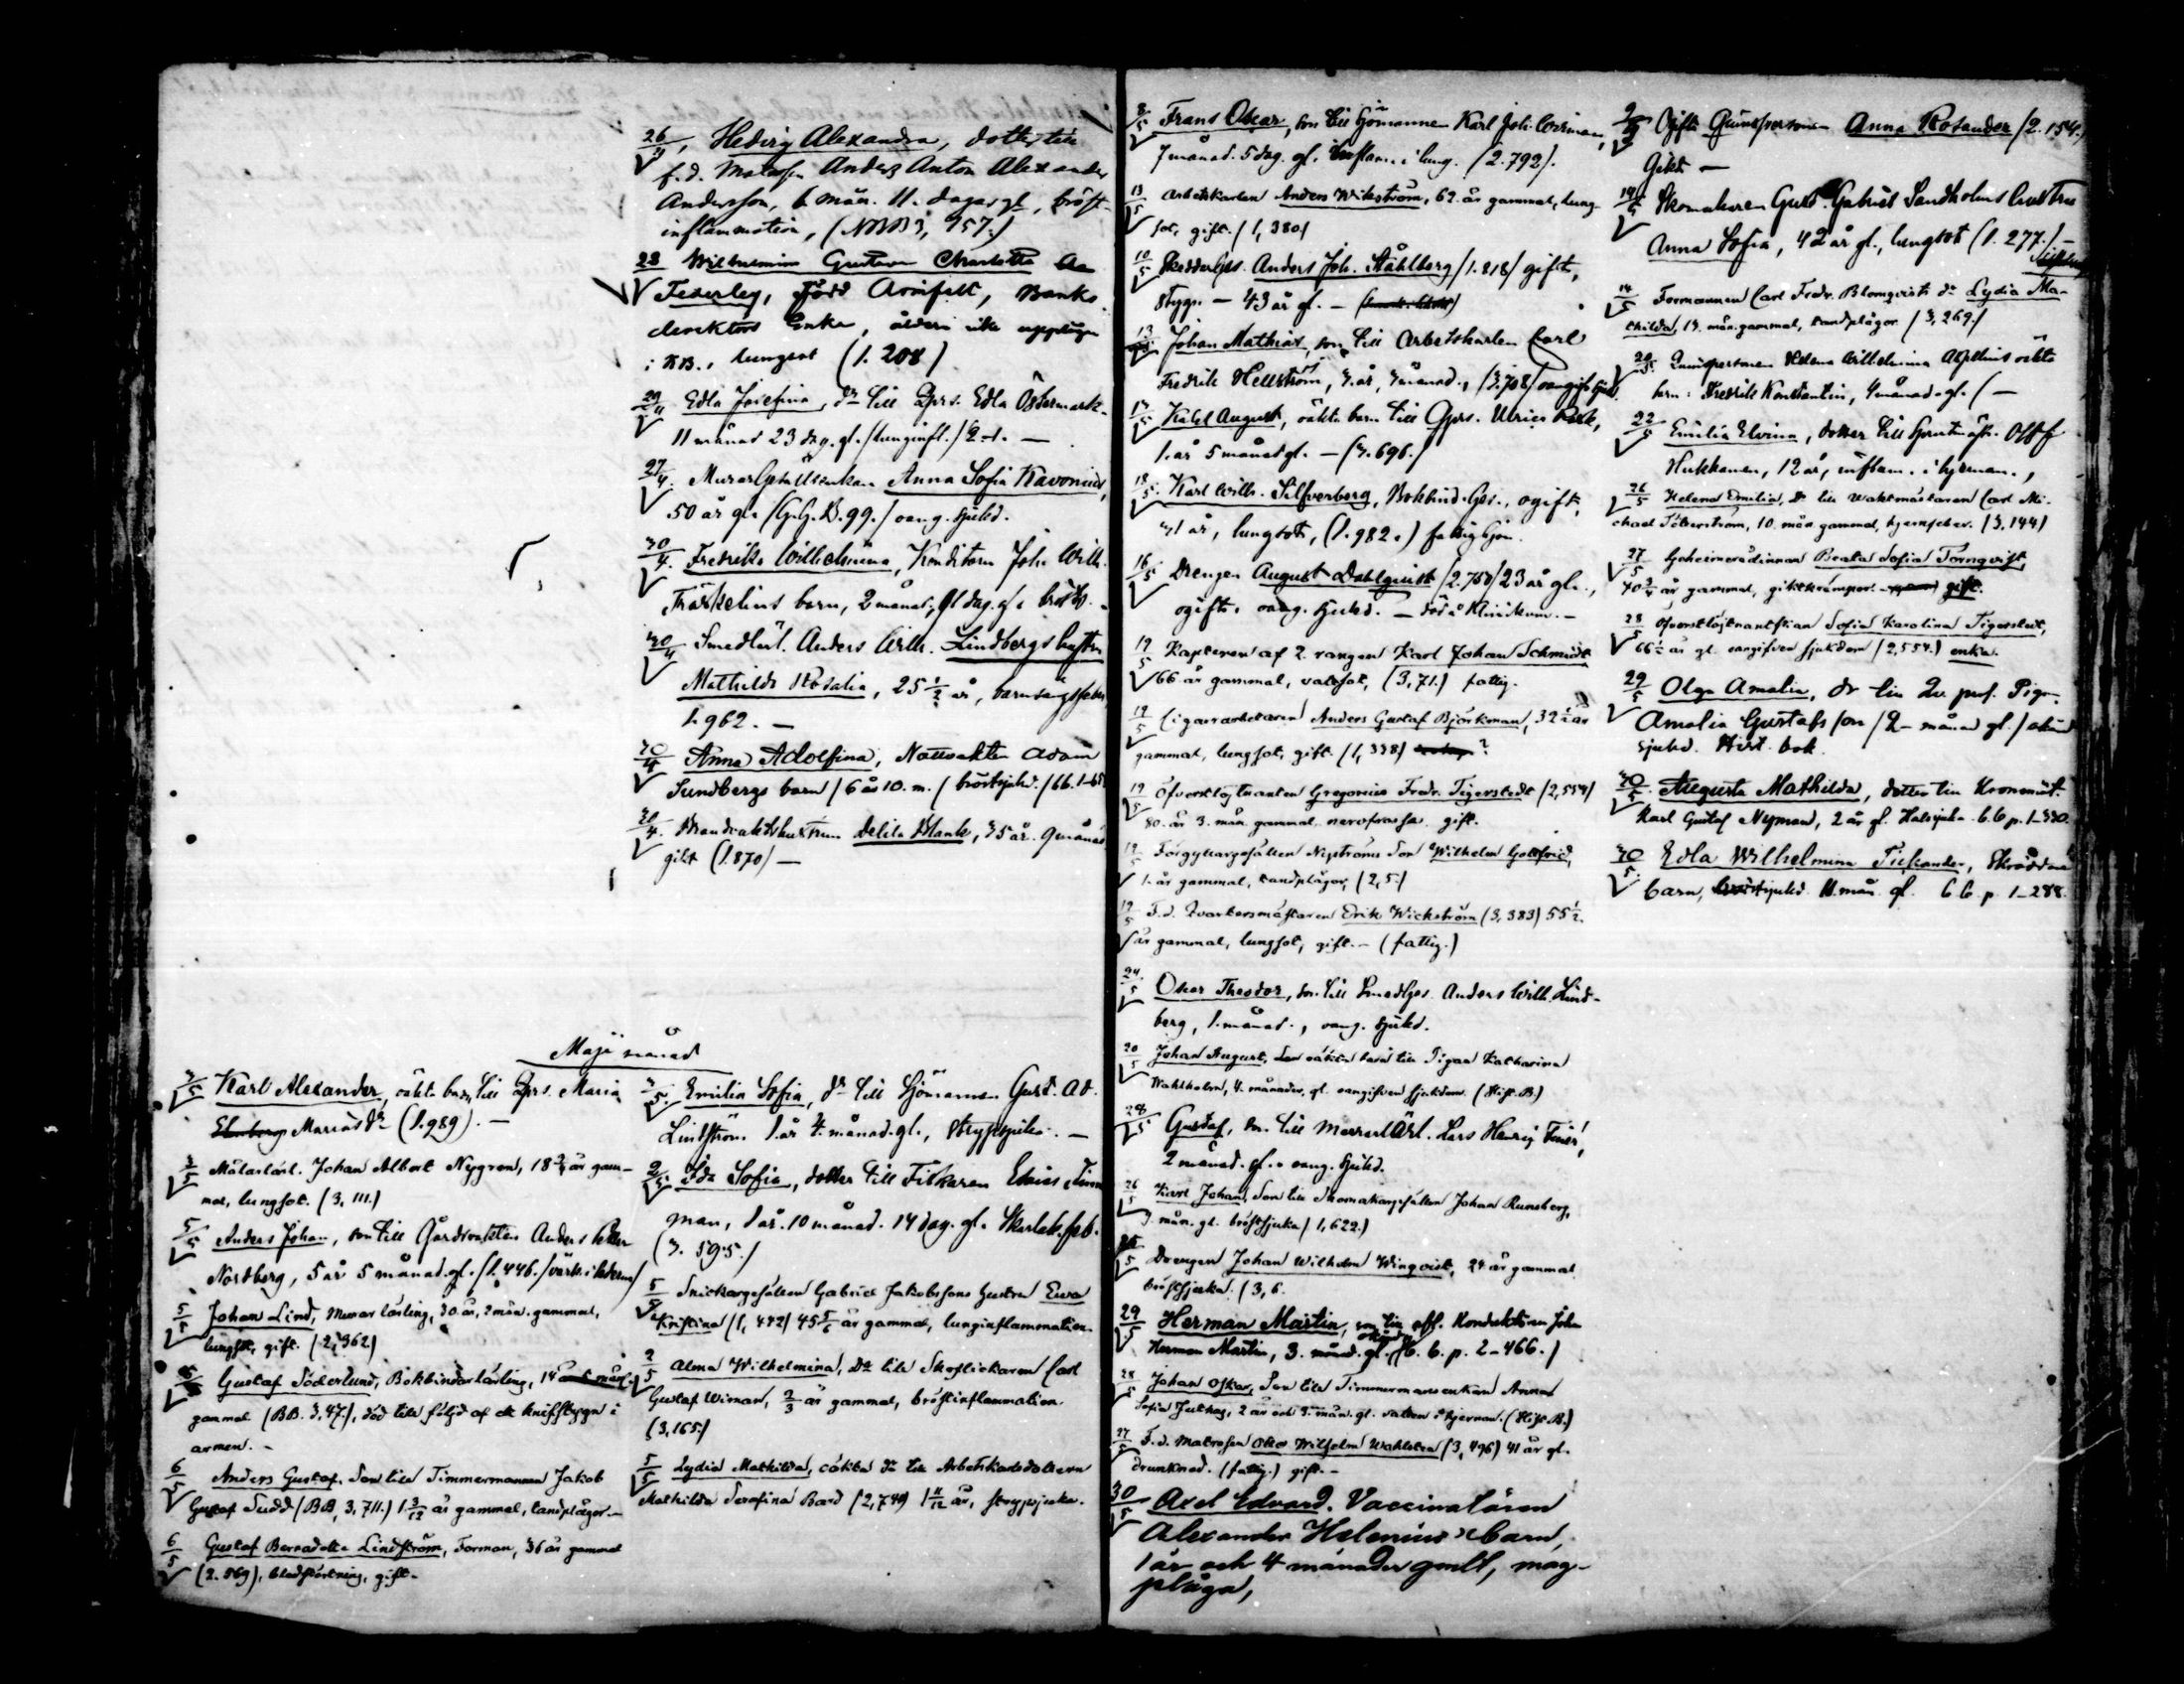 26/4 Hedvig Alexandra, dotter till
f. d. Matrosen Anders Anton Alexander
Andersson, 6 mån. 11. dagar gl, bröst-
inflammation, (NBB 3, 957.)
28 Wilhelmina Gustava Charlotta
Federley, född Armfelt, Banko
direktörs Enka, ålder icke upptagen
i KB., lungsot (1. 208)
29/4 Edla Josefina, dr till Qprs. Edla Östermark.
11 månad 23 dag. gl. /lunginfl./ 2-1. —
27/4. Murargesällsenkan Anna Sofia Kavonius,
50 år gl. /G.G.B. 99./ oang. sjukd.
30/4. Fredrika Willhelmina, Konditorn Joh. Wilh.
barn, 2 månad,
30/4 Smedlärl. Anders Wilh. Lindbergs hustru
Mathilda Rosalia, 25 1/2 år, barnsängsfeber
1. 962. —
30/4 Anna Adolfina, Nattvakten Adam
Sundbergs barn / 6 år 10. m. / bröstsjukd. /
30/4. Brandvaktshustrun Delila Blank, 35 år. 9 månad
gikt (1.870) —
Maji månad
3/5 Karl Alexander, oäkta barn till Qprs. Maria
Mariasdr (1.989). —
3/5 Målarlärl. Johan Albert Nygren, 18 3/4 år gam-
mal, lungsot. (3, 111.)
5/5 Anders Johan, son till Gårdvakten Anders
Nordberg, 5 år 5 månad. gl. (1. 446.)
5/5 Johan Lind, Murar lärling, 30 år, 2 mån. gammal,
lungsot, gift. (2, 362)
Gustaf Söderlund, Bokbindarlärling, 14
gammal (BB. 3, 47.), död till följd af ett knifstygn i
armen. -
6/5 Anders Gustaf, Son till Timmermannen Jakob
Gustaf Sudd (BB, 3, 711.) 1 3/12 år gammal, tandplågor. -
6/5 Gustaf Bernadotte Lindström, Forman, 36 år gammal
(2. 869), blodstörtning, gift. -
3/5. Emilia Sofia, dr till Sjömannen Gust. Ad.
Lindström 1. år 4. månad. gl., strypsjuka. —
2/5. Ida Sofia, dotter till Fiskaren Elias
man, 1 år. 10 månad. 14 dag. gl. Skarlak. feb.
(3. 595.)
5/5 Snickargesällen Gabriel Jakobssons hustru Eva
Kristina (1, 442) 45 5/6 år gammal, lunginflammation.
2/5 Alma Wilhelmina, Dr till Skoflickaren Carl
Gustaf Wiman, 2/3 år gammal, bröstinflammation
(3, 165.)
5/5 Lydia Mathilda, oäkta dr till Arbetskarlsdottern
Mathilda Serafina Bard (2, 749) 1 11/12 år, strypsjuka.
8/5 Frans Oskar, son till Sjömannen Karl Joh.
7 månad. 5 dag. gl. inflam. i lung. (2.792).
13/5 Arbetskarlen Anders Wikström, 62. år gammal, lung-
sot, gift. (1, 380)
10/5 Anders Joh. Ståhlberg /1.818/ gift,
stygn. — 43 år gl. —
13 Johan Mathias, son till Arbetskarlen Carl
Fredrik Hellström, 3. år, 3 månad., (3.708)
17/5 Karl August, oäkta barn till Qprs. Ulrica
1. år 5 månad gl. — (3.696.)
18/5. Karl Wilh. Silfverberg, Bokbind. Ges., ogift,
31 år, lungsot, (1.982.) fattighjon.
16/5 Drengen August Dahlqvist /2.750/ 23 år gl.,
ogift, oang. sjukd. — död å Klinikum. —
19/5 Kaptenen af 2. rangen Karl Johan Schmidt
66 år gammal, vatsot, (3, 71.) fattig.
19/5 Cigarrarbetaren Anders Gustaf Björkman, 32 1/2 år
gammal, lungsot, gift. (1, 338) ?
19/5 Öfverstlöjtnanten Gregorius Fredr. Tigerstedt (2, 554)
80. år 3. mån. gammal. nervfrossa. gift.
19/5 Förgyllaregesällen Nyströms Son Wilhelm Gottfrid,
1. år gammal, tandplågor, (2, 5.)
19/5 F. d. Qvartersmästaren Erik Wickström (3, 383) 55 1/2.
år gammal, lungsot, gift. - (fattig.)
24/5 Oskar Theodor, son till Smedges. Anders Wilh. Lind-
berg, 1. månad., oang. sjukd.
20/5 Johan August, Son oäkta barn till Pigan Katharina
Wahlholm, 4. månader, gl. oangifven sjukdom. (Hist. B.)
28/5 Gustaf, son till Lars Henrij
2 månad. gl. oang. sjukd.
26/5 Karl Johan, Son till Skomakargesällen Johan Runeberg,
9. mån. gl. bröstsjuka (1, 622.)
5 Drengen Johan Wilhelm Winqvist, 24 år gammal
bröstsjuka. (3, 6.
29/5 Herman Martin, son till Konduktören Joh.
Herman Martin, 3. månad. gl. (6. b. p. 2-466.)
28/5 Johan Oskar, Son till Timmermansenkan Anna
Sofia 2 år och 3. mån. gl. vatten i hjernan. (Hist. B.)
27/5 F. d. Matrosen Otto Wilhelm Wahlsten (3, 496) 41 år gl.
drunknad. (fattig.) gift. -
30/5 Axel Edvard. Vaccinatören
Alexander Helenius's barn,
1 år och 4 månader gmlt, mag-
plåga,
Ogifta Qvinspersonen Anna Rosander (2. 154.)
Gikt —
14/5 Skomakaren Gust. Gabriel Sandholms hustru
Anna Sofia, 42 år gl., lungsot (1. 277.) —
14/5 Formannen Carl Fredr. Blomqvists dr Lydia Ma-
thilda, 13. mån. gammal, tandplågor. (3, 269.)
20/5 Qvinspersonen Helena Wilhelmina oäkta
barn: Fredrik Konstantin, 4 månad. gl. ( —
22/5 Emilia Elvina, dotter till
Hukkanen, 12 år, inflam. i hjernan.,
26/5 Helena Emilia, Dr till Waktmästaren Carl Mi-
chael Söderström, 10. mån. gammal, hjernfeber. (3, 144)
27/5 Geheimerådinnan Beata Sofia Törnqvist,
70 3/4 år gammal, giktkrämpor. gift.
28/5 Öfverstlöjtnantskan Sofia Karolina Tigerstedt,
66 1/2 år gl. oangifven sjukdom (2, 554.) enka.
29/5 Olga Amalia, dr till Qv. pers. Pigan
Amalia Gustafsson /2 - månad gl./ okänd
sjukd. Hist. bok.
30/5. Augusta Mathilda, dotter till
Karl Gustaf Nyman, 2 år gl. Halssjuka 6. b. p. 1-330.
30/5. Edla Wilhelmina Tickander, Skräddare
barn, 11. mån. gl. 6 b. p. 1-288.